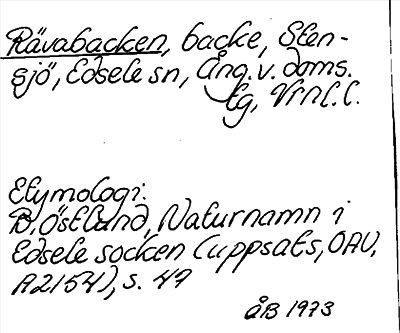 Rävabacken, backe, Sten-
sjö, Edsele sn, Ång. v. doms.
tg, Vrnl. l.
Etymologi:
B. Östlund, Naturnamn i
Edsele socken (uppsats, OAU,
A2154), s. 47
åB 1973